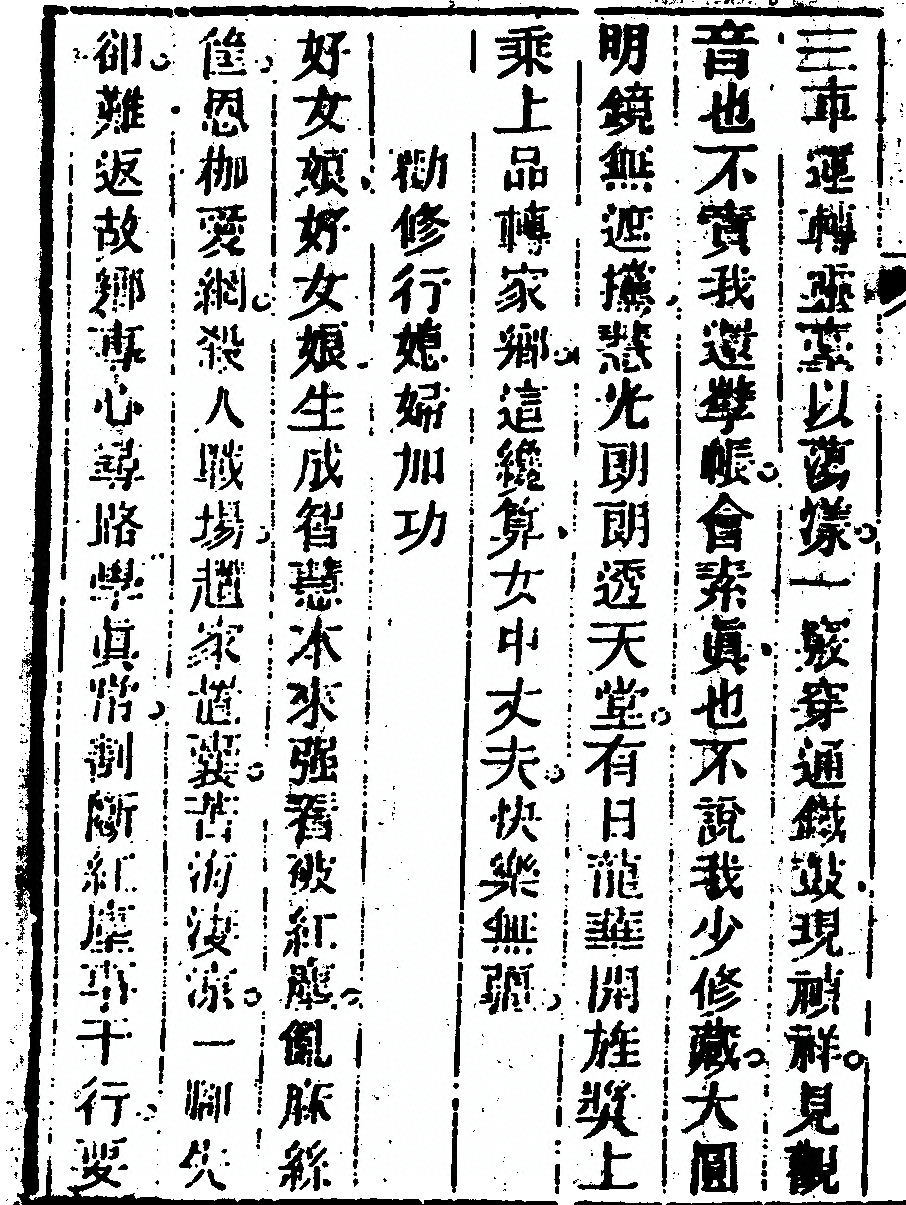 三車運轉靈臺以蕩漾一竅穿通鐵鼓現禎祥見觀
音也不賣我還擎帳會素眞也不說我少修藏大圓
明鏡無遮攩慧光朗朗透天堂有日龍華開旌獎上
乘上品轉家鄉這纔算女中丈夫快樂無疆
勸修行媳婦加功
好女娘好女娘生成智慧本來强舊被紅塵亂脉絲
筐恩枷愛網殺人戰場趲家道裳苦海淒涼一腳失
卻難返故鄉專心尋路學眞常割斷紅塵事千行要